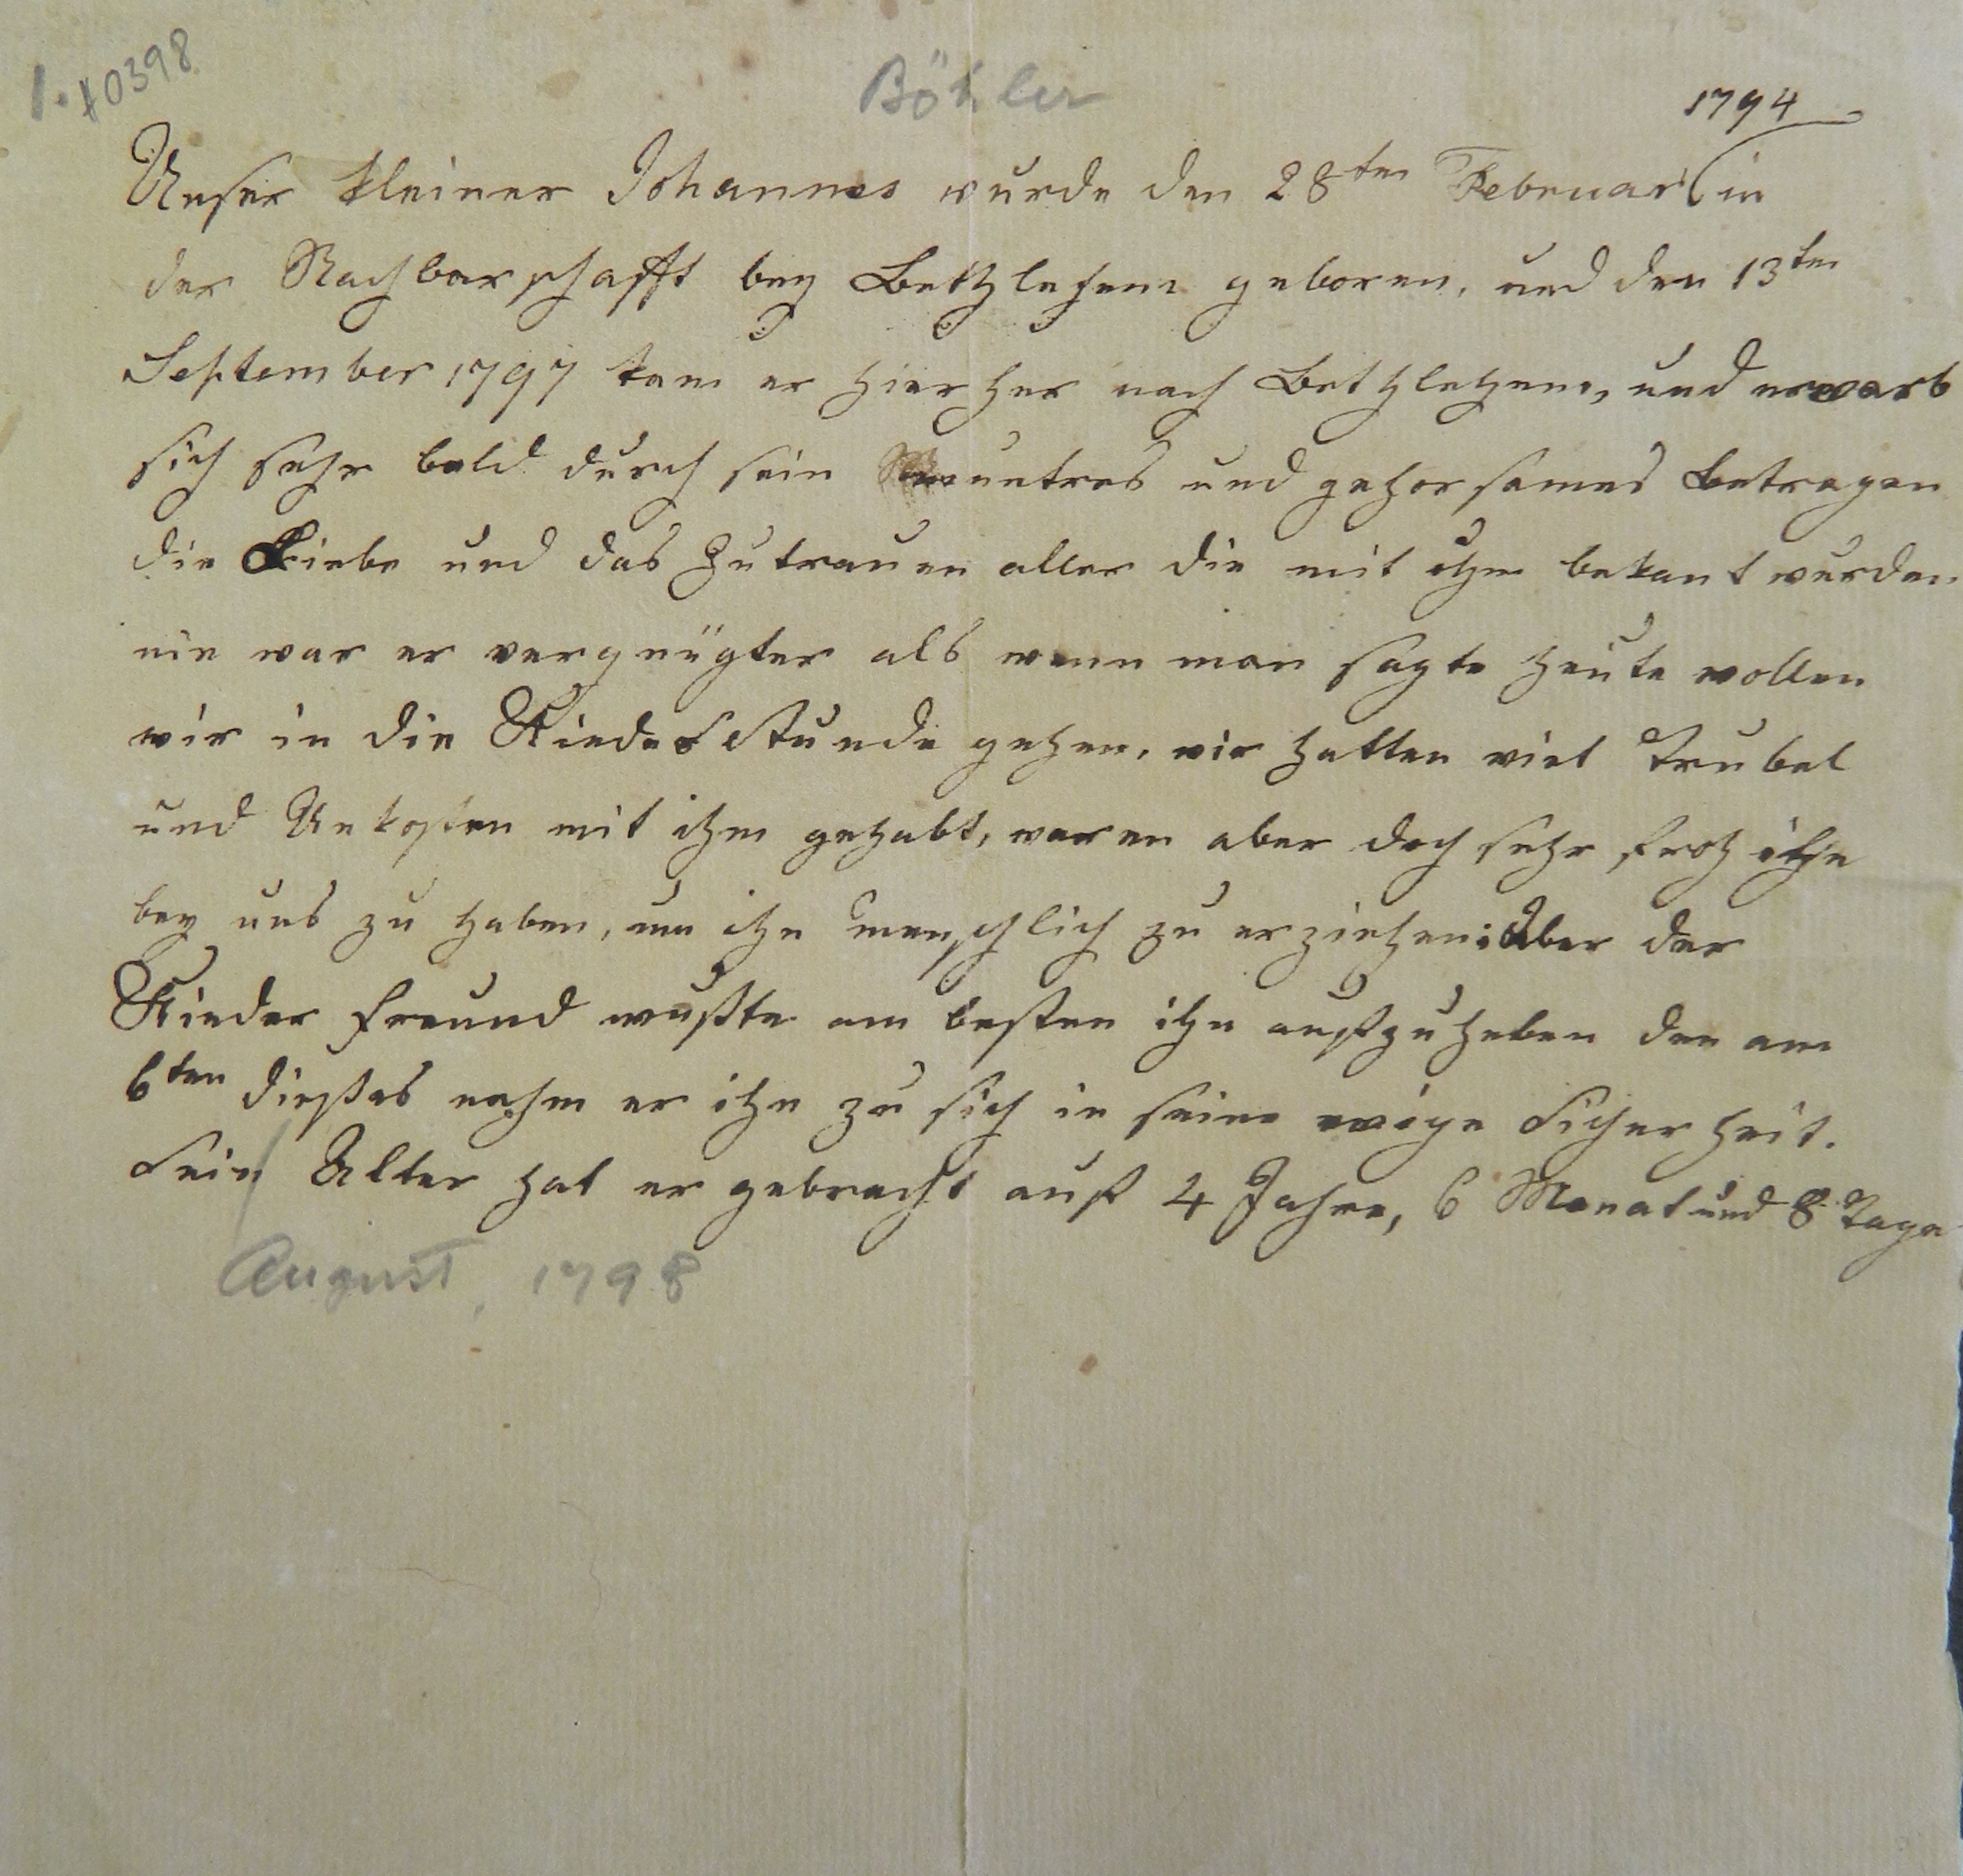 1. #0398
Böhler
1794
Unser kleiner Johannes wurde den 28ten Februar in
der Nachbarschafft bey Bethlehem geboren, und den 13ten
September 1797 kam er hierher nach Bethlehem, und erwarb
sich sehr bald durch sein Muntres und gehorsames Betragen
die Liebe und das Zutrauen aller die mit ihm bekant wurden
nie war er vergnügter als wenn man sagte heute wollen
wir in die Kinder Stunde gehen, wir hatten viel Trubel
und Unkosten mit ihm gehabt, waren aber doch sehr froh ihn
bey uns zu haben, um ihn menschlich zu erziehen: Aber der
Kinder Freund wußte am besten ihn aufzuheben den am
6ten dießes nahm er ihn zu sich in seine ewige Sicherheit.
Sein Alter hat er gebracht auf 4 Jahre, 6 Monat und 8 Tage
August, 1798